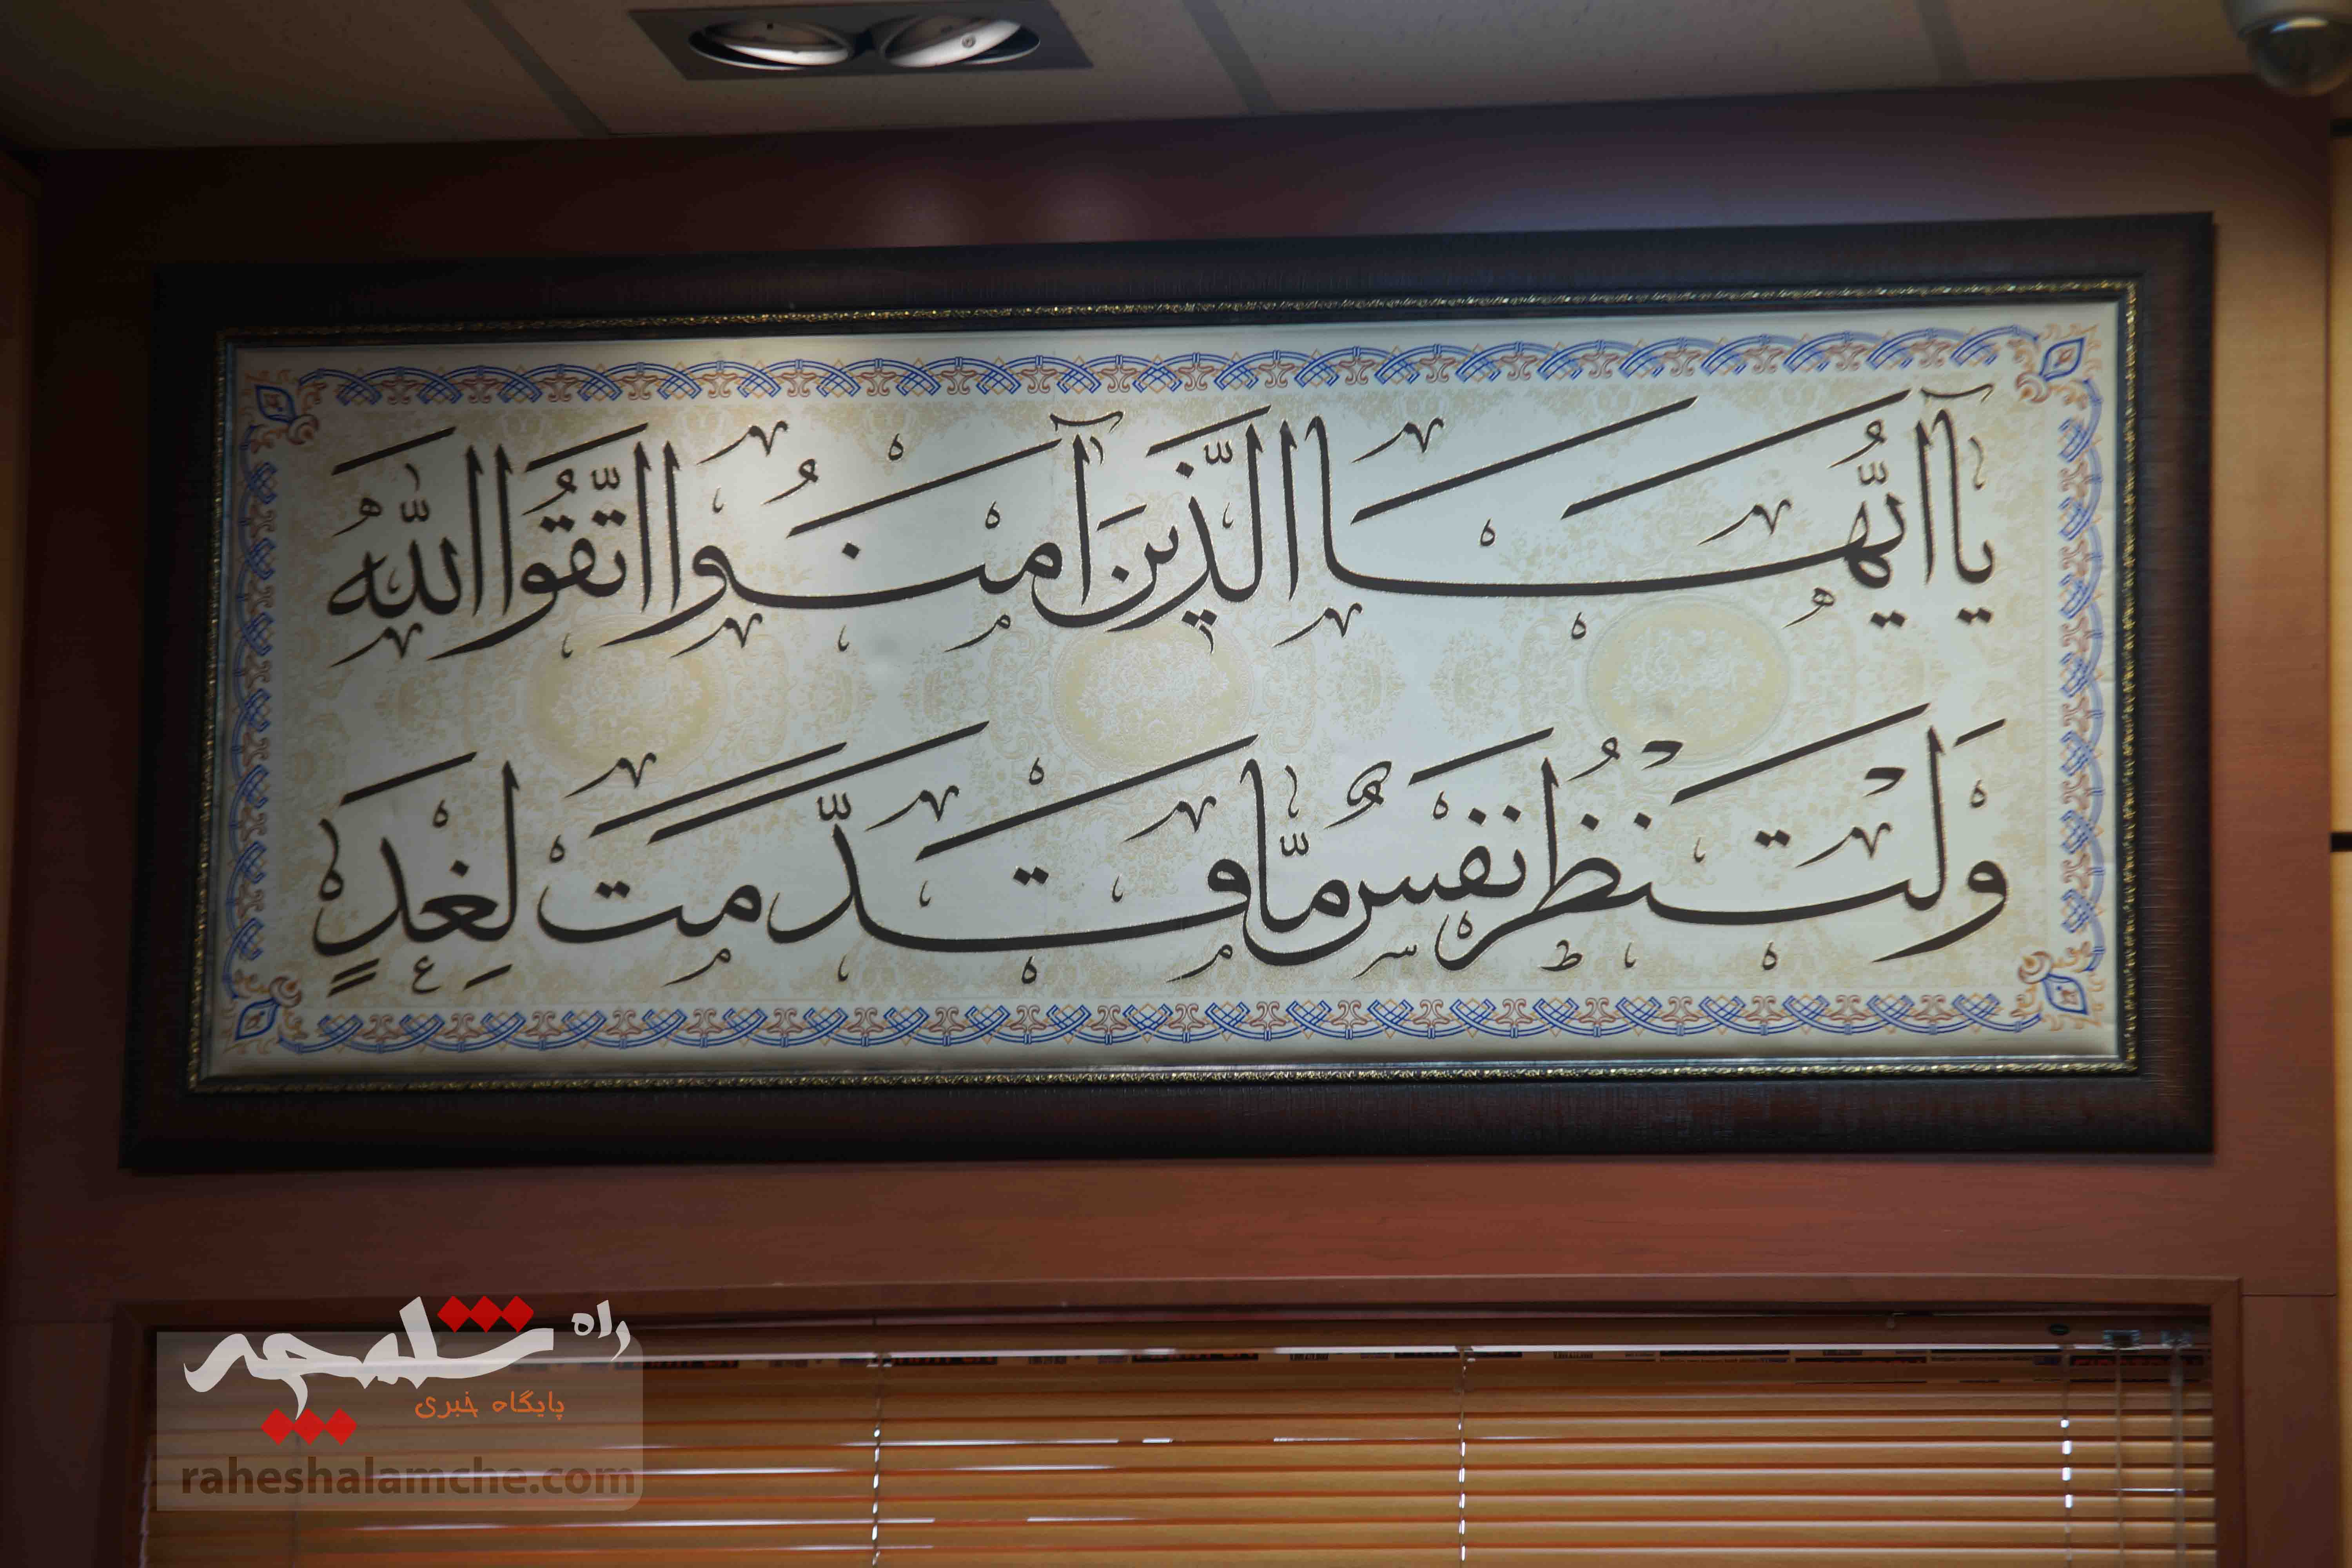 يَا أَيُّهَا الَّذِينَ آمَنُوا اتَّقُوا اللَّهَ
وَلْتَنْظُرْ نَفْسٌ مَّا قَدَّمَتْ لِغَدٍ
راه شلمچه
پایگاه خبری
raheshalamche.com